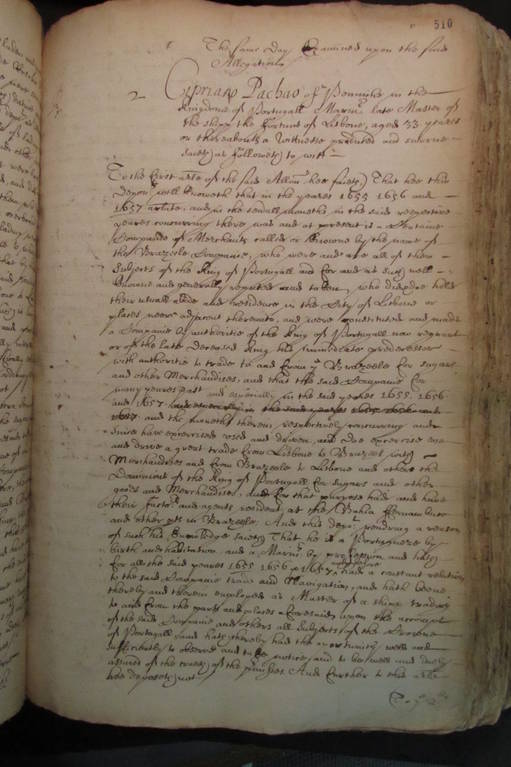 510
The same day Examined upon the said
Allegation
2 Cipriano Pachao of Peniche in the
Kingdome of Portugall Marinr late Master of
the shipp the Fortune of Lisbone, aged 33 yeares
or thereabouts a Wittnes produced and sworne
saieth as followeth to witt
To the first arle of the said Allon hee saieth That hee this
depont well knoweth that in the yeares 1655 1656 and
1657 arlate, and in the severall moneths in the said respective
yeares concurring there was and at present is a Certaine
Companie of Merchants called or knowne by the name of
the Brazeele Companie, who were and are all of them
Subjects of the King of Portugall and for and as such well
knowne and generally reputed and taken, who did and doe hold
their usuall abode and residence in the City of Lisbone or
places neere adjacent thereunto, and were constituted and made
a Companie by authoritie of the King of Portugall now regnant
or of the late deceased King his immediate predecessor
with authoritie to trade to and from ye Brazeele for sugars
and other Merchandizes, and that the said Companie for
many yeares past and especially in the said yeares 1655. 1656
and 1657 in the said yeares 1655 1656 and
1657 and the moneths therein respectively concurring and
since have exercised used and driven, and doe exercise use
and drive a great trade from Lisbone to Brazeel with
Merchandizes and from Brazeele to Lisbone and others the
Dominions of the King of Portugall for sugars and other
goods and Merchandizes, and for that purpose had and have
their factors and agents resident at the Bahia
and other pts in Brazeele, And this depont rendring a reason
of such his knowledge saieth That he is a Portuguese by
birth and habitation, and a Marinr by profession and hath
for all the said yeares 1655 1656 & 1657 had a constant relation
to the said Companie trade and Navigation, and hath beene
thereby and therein employed as Master of a shipp trading
to and from the parts and places aforesaid upon the account
of the said Companie and others all Subjects of the Crowne
of Portugall and hath thereby had the opportunity well and
sufficiently to observe and take notice, and to bee well and duely
assured of the truth of the premisses And further to this arle
hee deposeth not
To ye 2d